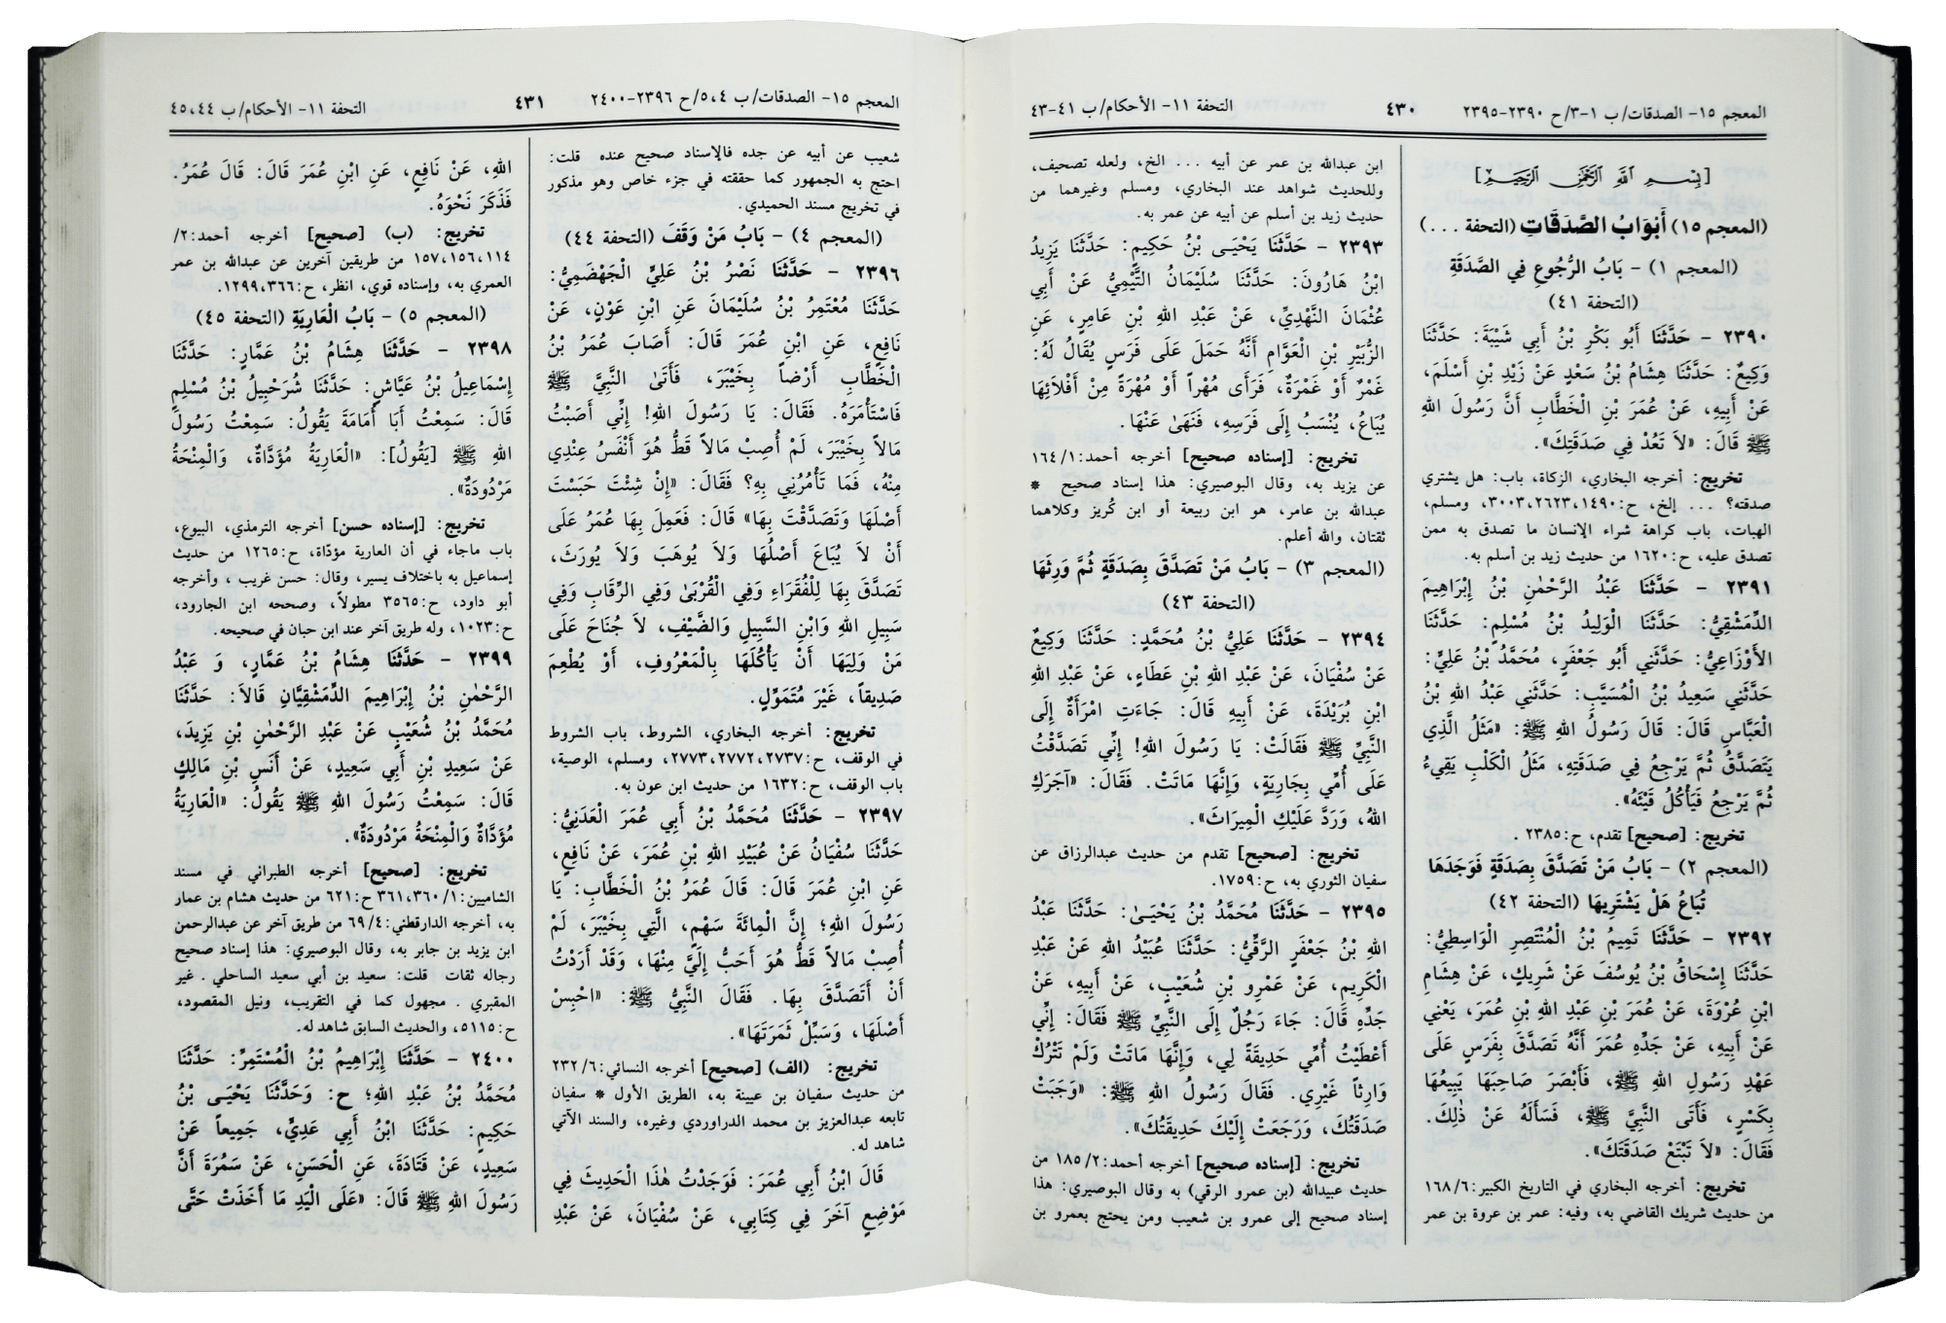 المعجم ١٥- الصدقات/ ب ١-٣/ ح ٢٣٩٠-٢٣٩٥
٤٣٠
التحفة ١١- الأحكام/ ب ٤١-٤٣
[بِسْمِ اللهِ الرَّحْمٰنِ الرَّحِيمِ]
(المعجم ١٥) أَبْوَابُ الصَّدَقَاتِ (التحفة . . .)
(المعجم ١) - بَابُ الرُّجُوعِ فِي الصَّدَقَةِ
(التحفة ٤١)
٢٣٩٠ - حَدَّثَنَا أَبُو بَكْرِ بْنُ أَبِي شَيْبَةَ: حَدَّثَنَا
وَكِيعٌ: حَدَّثَنَا هِشَامُ بْنُ سَعْدٍ عَنْ زَيْدِ بْنِ أَسْلَمَ،
عَنْ أَبِيهِ، عَنْ عُمَرَ بْنِ الْخَطَّابِ أَنَّ رَسُولَ اللهِ
ﷺ قَالَ: «لاَ تَعُدْ فِي صَدَقَتِكَ».
تخريج: أخرجه البخاري، الزكاة، باب: هل يشتري
صدقته؟ ... إلخ، ح:١٤٩٠،٢٦٢٣،٣٠٠٣، ومسلم،
الهبات، باب كراهة شراء الإنسان ما تصدق به ممن
تصدق عليه، ح:١٦٢٠ من حديث زيد بن أسلم به.
٢٣٩١ - حَدَّثَنَا عَبْدُ الرَّحْمٰنِ بْنُ إِبْرَاهِيمَ
الدِّمَشْقِيُّ: حَدَّثَنَا الْوَلِيدُ بْنُ مُسْلِمٍ: حَدَّثَنَا
الأَوْزَاعِيُّ: حَدَّثَنِي أَبُو جَعْفَرٍ، مُحَمَّدُ بْنُ عَلِيٍّ:
حَدَّثَنِي سَعِيدُ بْنُ الْمُسَيَّبِ: حَدَّثَنِي عَبْدُ اللهِ بْنُ
الْعَبَّاسِ قَالَ: قَالَ رَسُولُ اللهِ ﷺ: «مَثَلُ الَّذِي
يَتَصَدَّقُ ثُمَّ يَرْجِعُ فِي صَدَقَتِهِ، مَثَلُ الْكَلْبِ يَقِيءُ
ثُمَّ يَرْجِعُ فَيَأْكُلُ قَيْئَهُ».
تخريج: [صحيح] تقدم، ح:٢٣٨٥ .
(المعجم ٢) - بَابُ مَنْ تَصَدَّقَ بِصَدَقَةٍ فَوَجَدَهَا
تُبَاعُ هَلْ يَشْتَرِيهَا (التحفة ٤٢)
٢٣٩٢ - حَدَّثَنَا تَمِيمُ بْنُ الْمُنْتَصِرِ الْوَاسِطِيُّ:
حَدَّثَنَا إِسْحَاقُ بْنُ يُوسُفَ عَنْ شَرِيكٍ، عَنْ هِشَامِ
ابْنِ عُرْوَةَ، عَنْ عُمَرَ بْنِ عَبْدِ اللهِ بْنِ عُمَرَ، يَعْنِي
عَنْ أَبِيهِ، عَنْ جَدِّهِ عُمَرَ أَنَّهُ تَصَدَّقَ بِفَرَسٍ عَلَى
عَهْدِ رَسُولِ اللهِ ﷺ، فَأَبْصَرَ صَاحِبَهَا يَبِيعُهَا
بِكَسْرٍ، فَأَتَى النَّبِيَّ ﷺ، فَسَأَلَهُ عَنْ ذٰلِكَ.
فَقَالَ: «لاَ تَبْتَعْ صَدَقَتَكَ».
تخريج: أخرجه البخاري في التاريخ الكبير:٦/ ١٦٨
من حديث شريك القاضي به، وفيه: عمر بن عروة بن عمر
ابن عبدالله بن عمر عن أبيه ... الخ، ولعله تصحيف،
وللحديث شواهد عند البخاري، ومسلم وغيرهما من
حديث زيد بن أسلم عن أبيه عن عمر به.
٢٣٩٣ - حَدَّثَنَا يَحْيَى بْنُ حَكِيمٍ: حَدَّثَنَا يَزِيدُ
ابْنُ هَارُونَ: حَدَّثَنَا سُلَيْمَانُ التَّيْمِيُّ عَنْ أَبِي
عُثْمَانَ النَّهْدِيِّ، عَنْ عَبْدِ اللهِ بْنِ عَامِرٍ، عَنِ
الزُّبَيْرِ بْنِ الْعَوَّامِ أَنَّهُ حَمَلَ عَلَى فَرَسٍ يُقَالُ لَهُ:
غَمْرٌ أَوْ غَمْرَةٌ، فَرَأَى مُهْراً أَوْ مُهْرَةً مِنْ أَفْلاَئِهَا
يُبَاعُ، يُنْسَبُ إِلَى فَرَسِهِ، فَنَهَىٰ عَنْهَا.
تخريج: [إسناده صحيح] أخرجه أحمد:١/ ١٦٤
عن يزيد به، وقال البوصيري: هذا إسناد صحيح *
عبدالله بن عامر، هو ابن ربيعة أو ابن كُريز وكلاهما
ثقتان، والله أعلم.
(المعجم ٣) - بَابُ مَنْ تَصَدَّقَ بِصَدَقَةٍ ثُمَّ وَرِثَهَا
(التحفة ٤٣)
٢٣٩٤ - حَدَّثَنَا عَلِيُّ بْنُ مُحَمَّدٍ: حَدَّثَنَا وَكِيعٌ
عَنْ سُفْيَانَ، عَنْ عَبْدِ اللهِ بْنِ عَطَاءٍ، عَنْ عَبْدِ اللهِ
ابْنِ بُرَيْدَةَ، عَنْ أَبِيهِ قَالَ: جَاءَتِ امْرَأَةٌ إِلَى
النَّبِيِّ ﷺ فَقَالَتْ: يَا رَسُولَ اللهِ! إِنِّي تَصَدَّقْتُ
عَلَى أُمِّي بِجَارِيَةٍ، وَإِنَّهَا مَاتَتْ. فَقَالَ: «آجَرَكِ
اللهُ، وَرَدَّ عَلَيْكِ الْمِيرَاثَ».
تخريج: [صحيح] تقدم من حديث عبدالرزاق عن
سفيان الثوري به، ح:١٧٥٩.
٢٣٩٥ - حَدَّثَنَا مُحَمَّدُ بْنُ يَحْيَىٰ: حَدَّثَنَا عَبْدُ
اللهِ بْنُ جَعْفَرٍ الرَّقِّيُّ: حَدَّثَنَا عُبَيْدُ اللهِ عَنْ عَبْدِ
الْكَرِيمِ، عَنْ عَمْرِو بْنِ شُعَيْبٍ، عَنْ أَبِيهِ، عَنْ
جَدِّهِ قَالَ: جَاءَ رَجُلٌ إِلَى النَّبِيِّ ﷺ فَقَالَ: إِنِّي
أَعْطَيْتُ أُمِّي حَدِيقَةً لِي، وَإِنَّهَا مَاتَتْ وَلَمْ تَتْرُكْ
وَارِثاً غَيْرِي. فَقَالَ رَسُولُ اللهِ ﷺ: «وَجَبَتْ
صَدَقَتُكَ، وَرَجَعَتْ إِلَيْكَ حَدِيقَتُكَ».
تخريج: [إسناده صحيح] أخرجه أحمد:٢/ ١٨٥ من
حديث عبيدالله (بن عمرو الرقي) به وقال البوصيري: هذا
إسناد صحيح إلى عمرو بن شعيب ومن يحتج بعمرو بن
المعجم ١٥- الصدقات/ ب ٤،٥/ ح ٢٣٩٦-٢٤٠٠
٤٣١
التحفة ١١- الأحكام/ ب ٤٤،٤٥
شعيب عن أبيه عن جده فالإسناد صحيح عنده قلت:
احتج به الجمهور كما حققته في جزء خاص وهو مذكور
في تخريج مسند الحميدي.
(المعجم ٤) - بَابُ مَنْ وَقَفَ (التحفة ٤٤)
٢٣٩٦ - حَدَّثَنَا نَصْرُ بْنُ عَلِيٍّ الْجَهْضَمِيُّ:
حَدَّثَنَا مُعْتَمِرُ بْنُ سُلَيْمَانَ عَنِ ابْنِ عَوْنٍ، عَنْ
نَافِعٍ، عَنِ ابْنِ عُمَرَ قَالَ: أَصَابَ عُمَرُ بْنُ
الْخَطَّابِ أَرْضاً بِخَيْبَرَ، فَأَتَىٰ النَّبِيَّ ﷺ
فَاسْتَأْمَرَهُ. فَقَالَ: يَا رَسُولَ اللهِ! إِنِّي أَصَبْتُ
مَالاً بِخَيْبَرَ، لَمْ أُصِبْ مَالاً قَطُّ هُوَ أَنْفَسُ عِنْدِي
مِنْهُ، فَمَا تَأْمُرُنِي بِهِ؟ فَقَالَ: «إِنْ شِئْتَ حَبَسْتَ
أَصْلَهَا وَتَصَدَّقْتَ بِهَا» قَالَ: فَعَمِلَ بِهَا عُمَرُ عَلَى
أَنْ لاَ يُبَاعَ أَصْلُهَا وَلاَ يُوهَبَ وَلاَ يُورَثَ،
تَصَدَّقَ بِهَا لِلْفُقَرَاءِ وَفِي الْقُرْبَىٰ وَفِي الرِّقَابِ وَفِي
سَبِيلِ اللهِ وَابْنِ السَّبِيلِ وَالضَّيْفِ، لاَ جُنَاحَ عَلَى
مَنْ وَلِيَهَا أَنْ يَأْكُلَهَا بِالْمَعْرُوفِ، أَوْ يُطْعِمَ
صَدِيقاً، غَيْرَ مُتَمَوِّلٍ.
تخريج: أخرجه البخاري، الشروط، باب الشروط
في الوقف، ح:٢٧٣٧،٢٧٧٢،٢٧٧٣، ومسلم، الوصية،
باب الوقف، ح:١٦٣٢ من حديث ابن عون به.
٢٣٩٧ - حَدَّثَنَا مُحَمَّدُ بْنُ أَبِي عُمَرَ الْعَدَنِيُّ:
حَدَّثَنَا سُفْيَانُ عَنْ عُبَيْدِ اللهِ بْنِ عُمَرَ، عَنْ نَافِعٍ،
عَنِ ابْنِ عُمَرَ قَالَ: قَالَ عُمَرُ بْنُ الْخَطَّابِ: يَا
رَسُولَ اللهِ؛ إِنَّ الْمِائَةَ سَهْمٍ، الَّتِي بِخَيْبَرَ، لَمْ
أُصِبْ مَالاً قَطُّ هُوَ أَحَبُّ إِلَيَّ مِنْهَا، وَقَدْ أَرَدْتُ
أَنْ أَتَصَدَّقَ بِهَا. فَقَالَ النَّبِيُّ ﷺ: «احْبِسْ
أَصْلَهَا، وَسَبِّلْ ثَمَرَتَهَا».
تخريج: (الف) [صحيح] أخرجه النسائي:٦/ ٢٣٢
من حديث سفيان بن عيينة به، الطريق الأول * سفيان
تابعه عبدالعزيز بن محمد الدراوردي وغيره، والسند الآتي
شاهد له.
قَالَ ابْنُ أَبِي عُمَرَ: فَوَجَدْتُ هٰذَا الْحَدِيثَ فِي
مَوْضِعٍ آخَرَ فِي كِتَابِي، عَنْ سُفْيَانَ، عَنْ عَبْدِ
اللهِ، عَنْ نَافِعٍ، عَنِ ابْنِ عُمَرَ قَالَ: قَالَ عُمَرُ.
فَذَكَرَ نَحْوَهُ.
تخريج: (ب) [صحيح] أخرجه أحمد:٢/
١١٤،١٥٦،١٥٧ من طريقين آخرين عن عبدالله بن عمر
العمري به، وإسناده قوي، انظر، ح:٣٦٦،١٢٩٩.
(المعجم ٥) - بَابُ الْعَارِيَةِ (التحفة ٤٥)
٢٣٩٨ - حَدَّثَنَا هِشَامُ بْنُ عَمَّارٍ: حَدَّثَنَا
إِسْمَاعِيلُ بْنُ عَيَّاشٍ: حَدَّثَنَا شُرَحْبِيلُ بْنُ مُسْلِمٍ
قَالَ: سَمِعْتُ أَبَا أُمَامَةَ يَقُولُ: سَمِعْتُ رَسُولَ
اللهِ ﷺ [يَقُولُ]: «الْعَارِيَةُ مُؤَدَّاةٌ، وَالْمِنْحَةُ
مَرْدُودَةٌ».
تخريج: [إسناده حسن] أخرجه الترمذي، البيوع،
باب ماجاء في أن العارية مؤدّاة، ح:١٢٦٥ من حديث
إسماعيل به باختلاف يسير، وقال: حسن غريب ، وأخرجه
أبو داود، ح:٣٥٦٥ مطولاً، وصححه ابن الجارود،
ح:١٠٢٣، وله طريق آخر عند ابن حبان في صحيحه.
٢٣٩٩ - حَدَّثَنَا هِشَامُ بْنُ عَمَّارٍ، وَ عَبْدُ
الرَّحْمٰنِ بْنُ إِبْرَاهِيمَ الدِّمَشْقِيَّانِ قَالاَ: حَدَّثَنَا
مُحَمَّدُ بْنُ شُعَيْبٍ عَنْ عَبْدِ الرَّحْمٰنِ بْنِ يَزِيدَ،
عَنْ سَعِيدِ بْنِ أَبِي سَعِيدٍ، عَنْ أَنَسِ بْنِ مَالِكٍ
قَالَ: سَمِعْتُ رَسُولَ اللهِ ﷺ يَقُولُ: «الْعَارِيَةُ
مُؤَدَّاةٌ وَالْمِنْحَةُ مَرْدُودَةٌ».
تخريج: [صحيح] أخرجه الطبراني في مسند
الشاميين:١/ ٣٦٠،٣٦١ ح:٦٢١ من حديث هشام بن عمار
به، أخرجه الدارقطني:٤/ ٦٩ من طريق آخر عن عبدالرحمن
ابن يزيد بن جابر به، وقال البوصيري: هذا إسناد صحيح
رجاله ثقات قلت: سعيد بن أبي سعيد الساحلي . غير
المقبري . مجهول كما في التقريب، ونيل المقصود،
ح:٥١١٥، والحديث السابق شاهد له.
٢٤٠٠ - حَدَّثَنَا إِبْرَاهِيمُ بْنُ الْمُسْتَمِرِّ: حَدَّثَنَا
مُحَمَّدُ بْنُ عَبْدِ اللهِ؛ ح: وَحَدَّثَنَا يَحْيَى بْنُ
حَكِيمٍ: حَدَّثَنَا ابْنُ أَبِي عَدِيٍّ، جَمِيعاً عَنْ
سَعِيدٍ، عَنْ قَتَادَةَ، عَنِ الْحَسَنِ، عَنْ سَمُرَةَ أَنَّ
رَسُولَ اللهِ ﷺ قَالَ: «عَلَى الْيَدِ مَا أَخَذَتْ حَتَّى